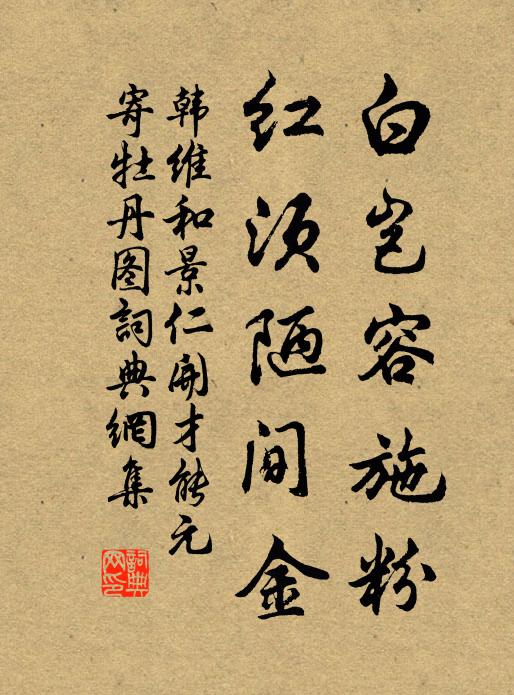 白岂容施粉
红须陋间金
韩维和景仁开才能元
寄牡丹图詞典網集
詞典网印